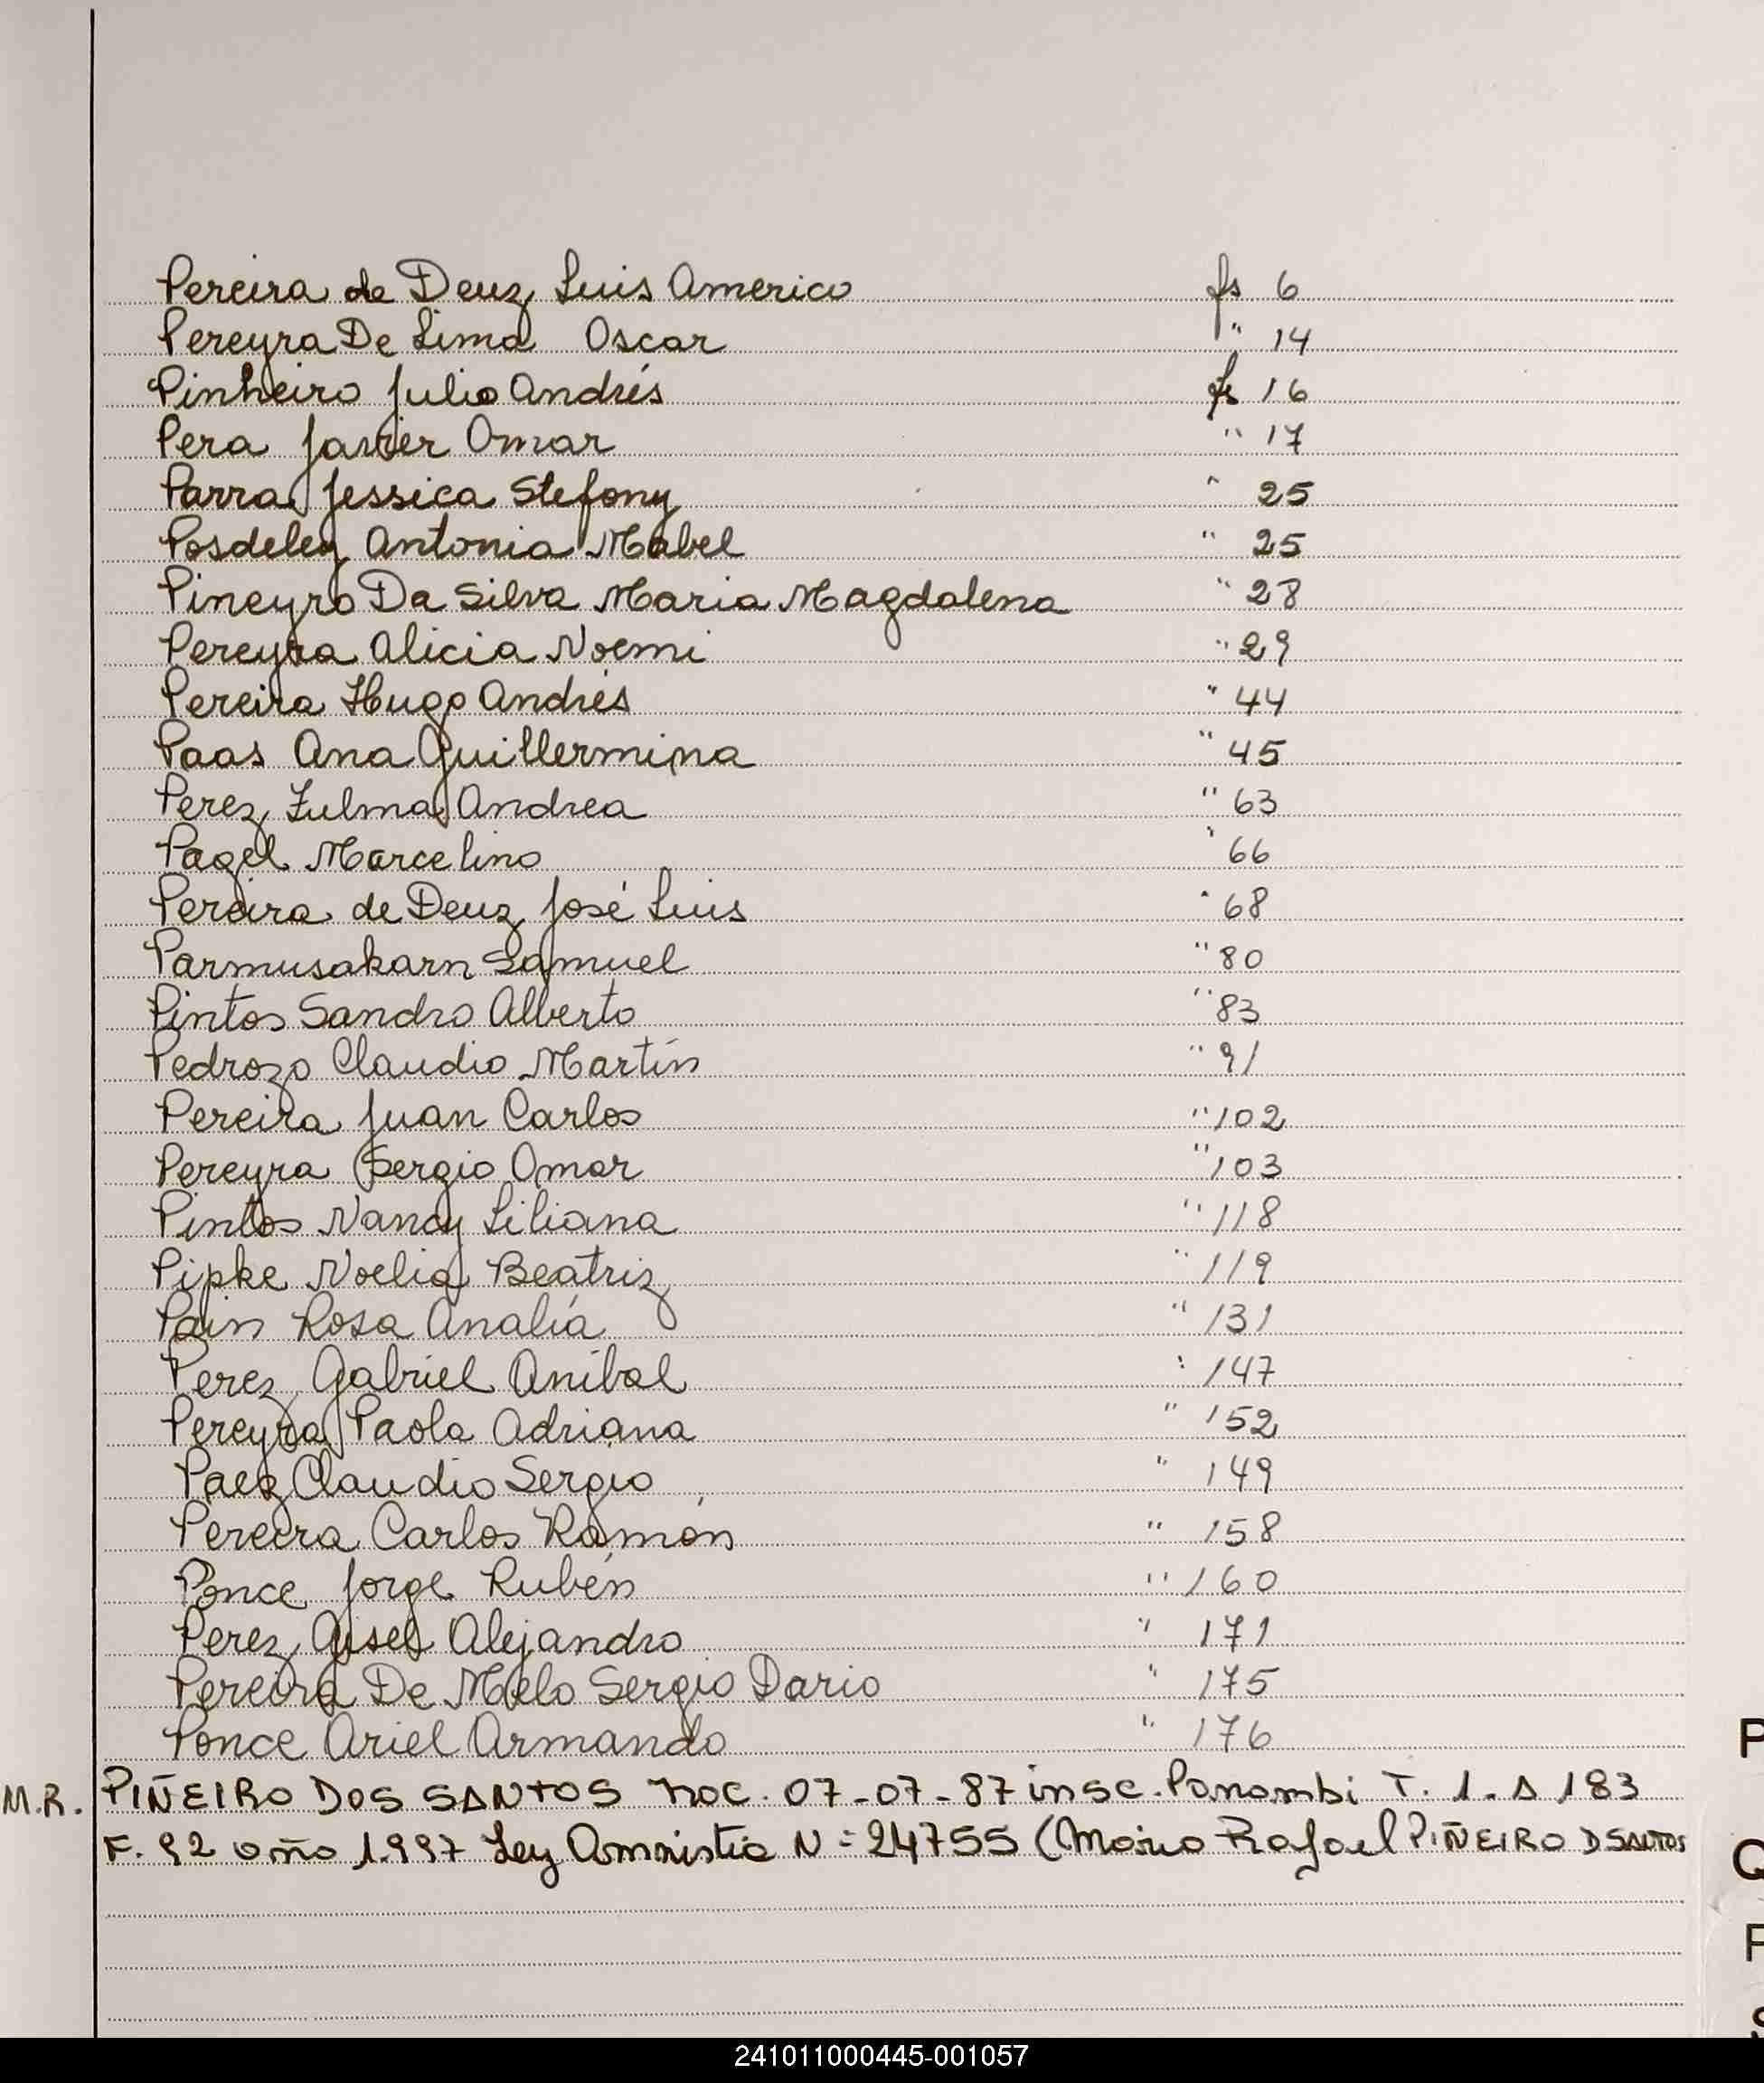 Pereira de Deuz Luis Americo fs 6
Pereyra De Lima Oscar " 14
Pinheiro Julio Andrés fs 16
Pera Javier Omar " 17
Parra Jessica Stefony " 25
Posdeley Antonia Mabel " 25
Pineyro Da Silva Maria Magdalena " 28
Pereyra Alicia Noemi " 29
Pereira Hugo Andrés " 44
Paas Ana Guillermina " 45
Perez Zulma Andrea " 63
Pagel Marcelino " 66
Pereira de Deuz José Luis " 68
Parmusakarn Samuel " 80
Pintos Sandro Alberto " 83
Pedrozo Claudio Martín " 91
Pereira Juan Carlos " 102
Pereyra Sergio Omar " 103
Pintos Nancy Liliana " 118
Pipke Noelia Beatriz " 119
Pain Rosa Analía " 131
Perez Gabriel Anibal " 147
Pereyra Paola Adriana " 152
Paez Claudio Sergio " 149
Pereira Carlos Ramón " 158
Ponce Jorge Rubén " 160
Perez Gisel Alejandro " 171
Pereira De Melo Sergio Dario " 175
Ponce Ariel Armando " 176
M.R. PIÑEIRO DOS SANTOS Noc. 07-07-87 insc. Panambi T. 1. A 183
F. 92 año 1.997 Ley Amnistia N= 24755 (Mario Rafael PIÑEIRO D SANTOS
P
Q
241011000445-001057